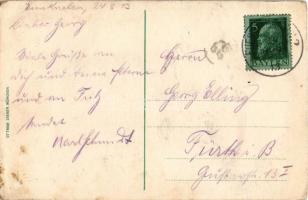 24.8.13
Lieber Georg
Viele Grüße an
dich und deine Eltern
und an Fritz
sendet
Karl Schmidt
Herrn
Georg Elling
Fürth i. B
13 I
BAYERN
5
OTTMAR ZIEHER, MÜNCHEN